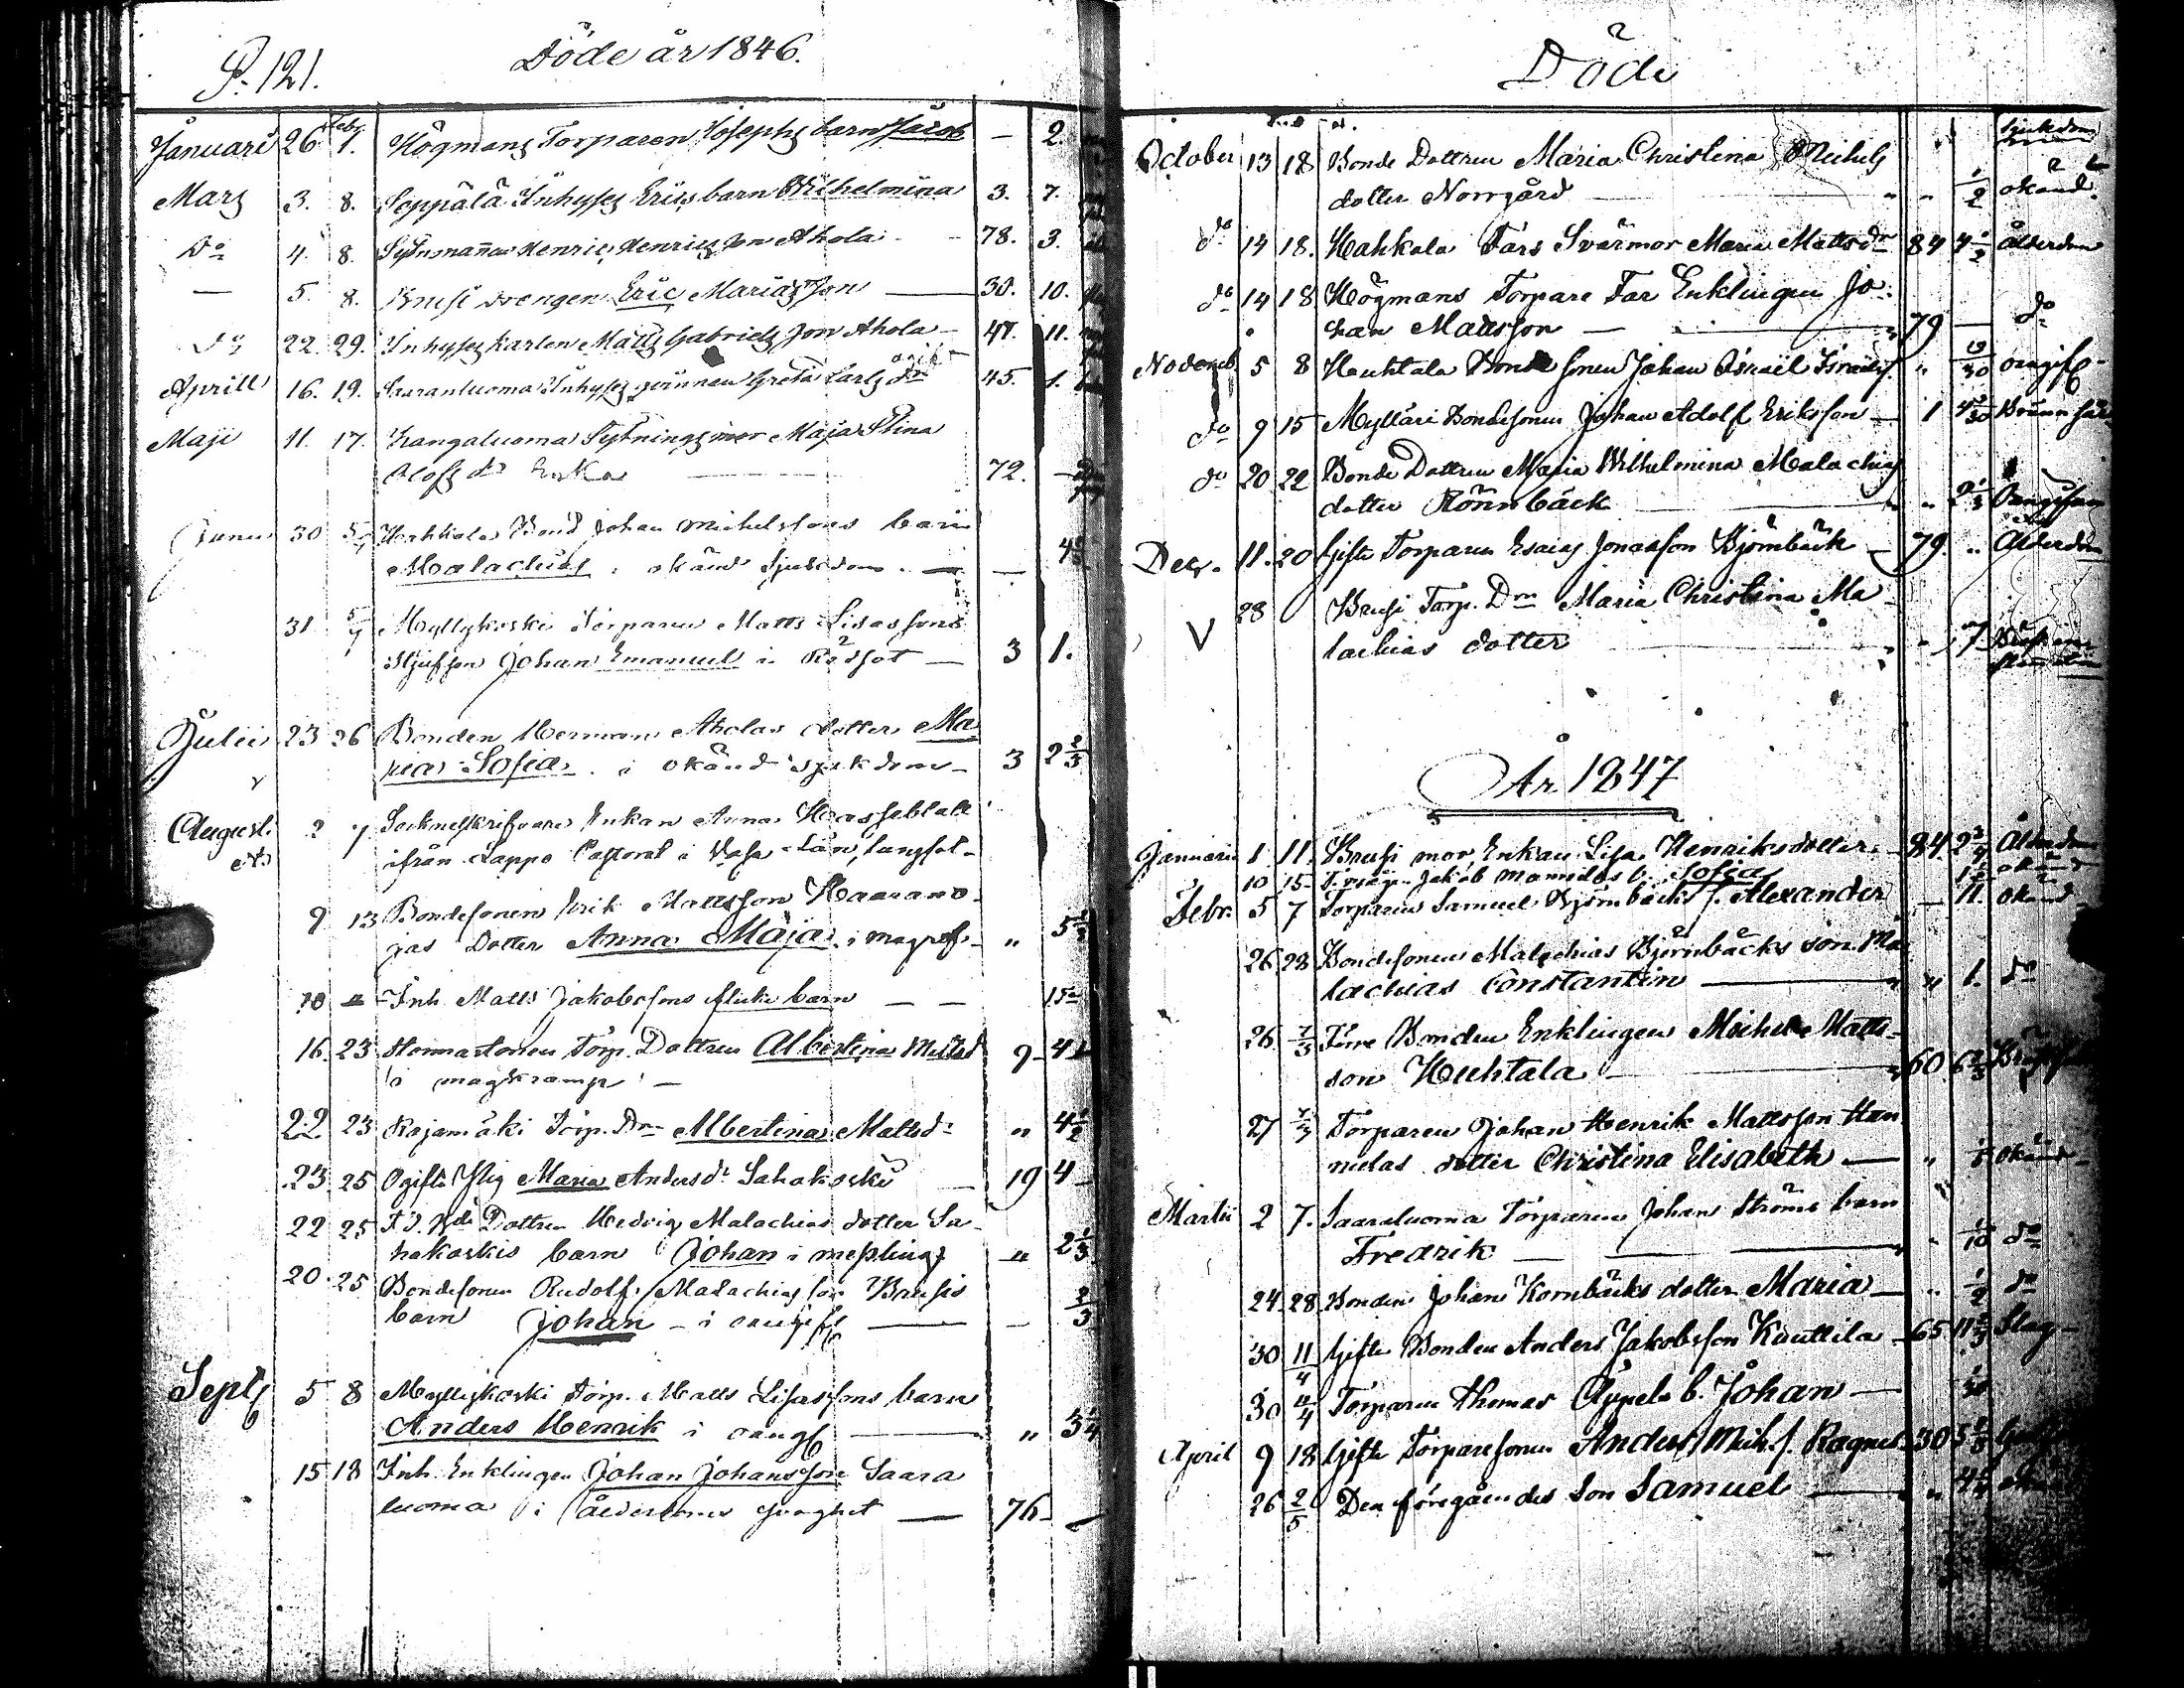 P. 121.
Döde år 1846.
Januari 26. Febr. 1. Högmans Torparen Josephs barn Jacob — 2.
Mars 3. 8. Seppälä Inhyses Erics barn Wilhelmina 3. 7.
Do 4. 8. Henric Henrics son Ahola 78. 3.
— 5. 8. Brusi drengen Eric Mariæ son — 30. 10.
Do 22. 29. Inhyses karlen Matts Gabriels son Ahola — 47. 11.
Aprill 16. 19. Saaranluoma Inhyses qvinnan Greta Carls dr 45. 1.
Maji 11. 17. Kangaluoma Sytnings mor Maja Stina
Olofs dr Enka 72. —
Junii 30 5/7 Hahkola Bond Johan Michelssons barn
Malachias, okänd Sjukdom. — —
31 5/7 Myllykoski Torparen Matts Lisassons
Styfson Johan Emanuel i Rödsot — 3 1.
Julii 23 26 Bonden Herman Aholas dotter Ma
ria Sofia i okänd sjukdom — 3 2 2/3
Augusti 2 7 Socknskrifvare Enkan Anna Hasseblatt
ifrån Lappo Pastorat i Vasa Län, lungsot —
9 13 Bondesonen Erik Mattsson Haarano
jas Dotter Anna Maja i „ 5 1/2
10 Inh. Matts Jakobssons flicke barn — —
16. 23 Torp. Dottren Albertina Mattsd 9 4
i magkramp —
22. 23 Rajamäki Torp. Drn Albertina Mattsdr „ 4 1/2
23. 25 Ogifta Maria Andersdr Sahakoski 19 4
22 25 Dottren Hedvig Malachias dotter Sa
hakoskis barn Johan i messling „ 2 1/3
20. 25 Bondesonen Rudolf Malachias son Brusis
barn Johan — i oangifs — — 2/3
Septs 5 8 Myllykoski Torp. Matts Lisassons barn
Anders Henrik i oangs — „ 3 1/4
15 18 Inh. Enklingen Johan Johansson Saara
luoma i ålderdoms svaghet — 76 —
Döde
October 13 18 Bonde Dottren Maria Christina Michels
dotter Norrgård — — 1/2 okänd
do 14 18. Hahkala Fars Svärmor Maria Mattsdr 84 4 1/2 Ålderdom
do 14 18 Högmans Torpare Far Enklingen Jo=
han Mattsson — 79 — do
Novemb. 5 8 Huhtala Bonde sonen Johan Israël Israëls. „ 19/30 oangifs
do 9 15 Mylläri Bondesonen Johan Adolf Eriksson 1
do 20 22 Bonde Dottren Maria Wilhelmina Malachias
dotter Rönnbäck — „ 2 1/3
Decr. 11. 20 Gifte Torparen Esaias Jonasson Björnbäck — 79 „ Ålderdom
28 Brusi Torp. Drn Maria Christina Ma
lachias dotter — 7
År 1847
Januari 1 11. Brusi mor Enkan Lisa Henriksdotter — 84 2 3/4 Ålderdom
10 15 Jakob Mannilas b. Sofia okänd
Febr. 5 7 Torparen Samuel Björnbäcks s. Alexander — 11. okänd
26 28 Bondesonen Malachias Björnbäcks son Ma
lachias Constantin — „ 1. do
26 7/3 Förre Bonden Enklingen Michel Matts=
son Huhtala — 60 6 2/3
27 7/3 Torparen Johan Henrik Mattsson Han
nulas dotter Christina Elisabeth — „ okänd
Martii 2 7. Saaraluoma Torparen Johan Ströms barn
Fredrik — „ 1/10 do
24 28 Bonden Johan Kornbäcks dotter Maria — „ 1/2 do
30 11/4 Gifte Bonden Anders Jakobsson Knuttila 65 11 2/3 Slag
30 11/4 Torparen Thomas Äppelö b. Johan — 1/30
April 9 18 Gifte Torparesonen Anders Mich. s. Ragnes 30
26 2/5 Den föregåendes Son Samuel — „